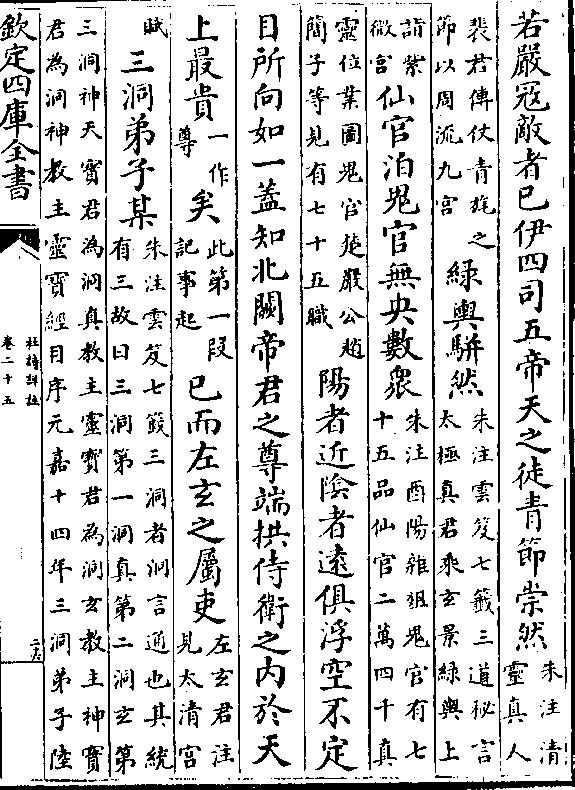 若嚴寇敵者已伊四司五帝天之徒青節崇然朱注清靈真人
裴君傳仗青旄之節以周流九宫綠輿駢然朱注雲笈七籤三道秘言太極真君乘玄景綠輿上
詣紫微宫仙官洎鬼官無央數衆朱注酉陽雜俎鬼官有七十五品仙官二萬四千真
靈位業圖鬼官楚嚴公趙簡子等見有七十五職陽者近陰者遠俱浮空不定
目所向如一蓋知北闕帝君之尊端拱侍衛之内於天
上最貴一作尊矣此第一段記事起已而左玄之屬吏左玄君注見太清宫
賦三洞弟子某朱注雲笈七籤三洞者洞言通也其統有三故曰三洞第一洞真第二洞玄第
三洞神天寳君為洞真教主靈寳君為洞玄教主神寳君為洞神教主靈寳經目序元嘉十四年三洞弟子陸
欽定四庫全書
杜詩詳註
卷二十五